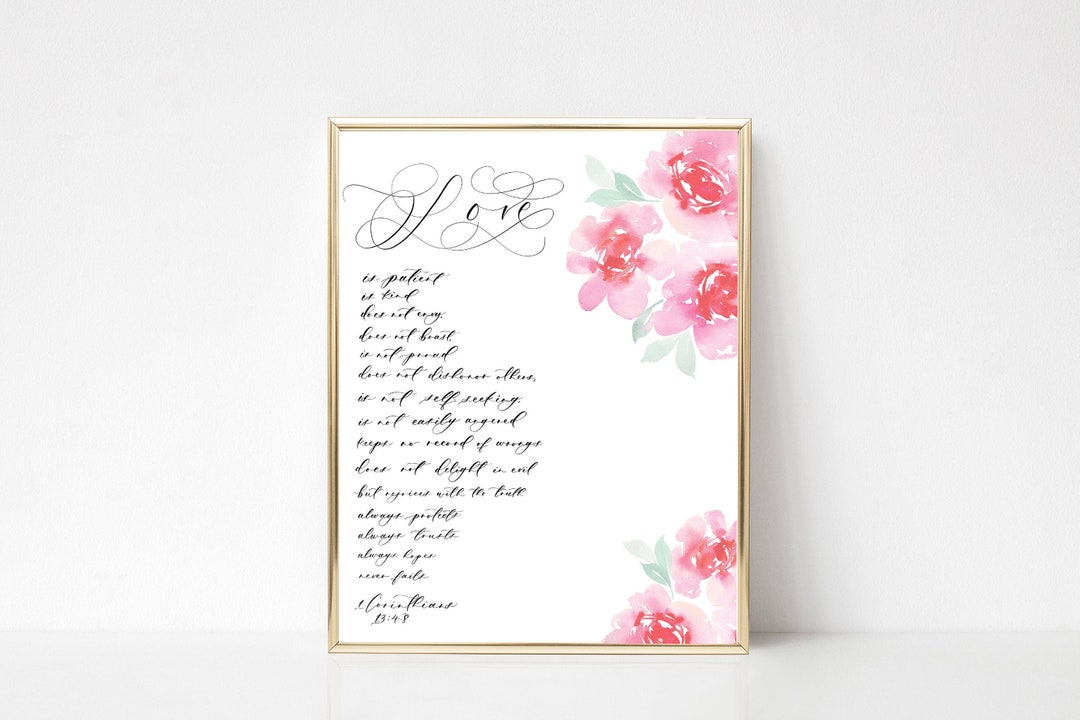 Love
is patient
is kind
does not envy,
does not boast,
is not proud
does not dishonor others,
is not self-seeking,
is not easily angered
keeps no record of wrongs
does not delight in evil
but rejoices with the truth
always protects
always trusts
always hopes
never fails
1 Corinthians
13:4-8